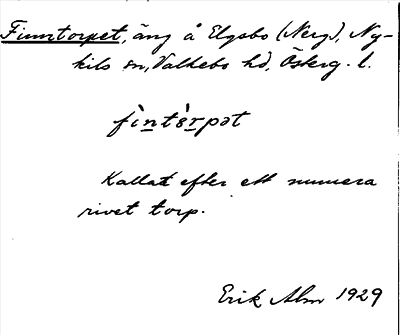 Finntorpet, äng å Elgsbo (Nerg), Ny-
kils sn, Valkebo hd, Österg. l.
fìntòrpət
Kallat efter ett numera
rivet torp.
Erik Alm 1929